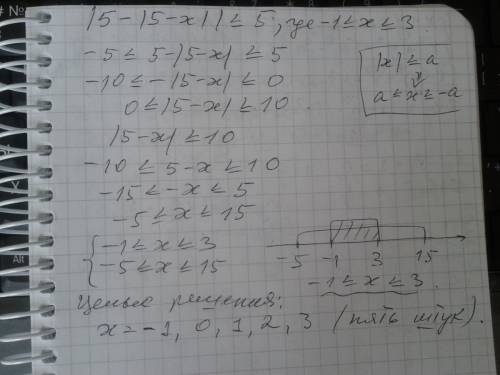 |5-|5-x|| ≤ 5, где -1 ≤ x ≤ 3.
-5 ≤ 5-|5-x| ≤ 5
-10 ≤ -|5-x| ≤ 0
0 ≤ |5-x| ≤ 10.
|x| ≤ a
⇓
a ≤ x ≤ -a
|5-x| ≤ 10
-10 ≤ 5-x ≤ 10
-15 ≤ -x ≤ 5
-5 ≤ x ≤ 15
{ -1 ≤ x ≤ 3
-5 ≤ x ≤ 15
-5 -1 3 15
-1 ≤ x ≤ 3.
Целые решения:
x = -1, 0, 1, 2, 3 (пять штук).
Alt